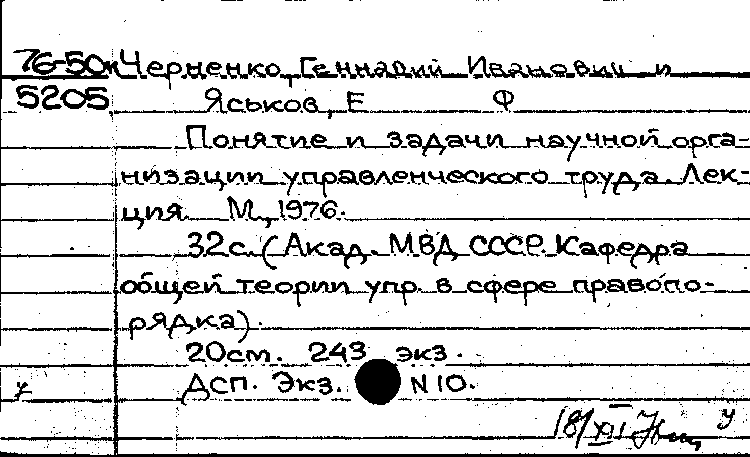 76-50к Черненко, Геннадий Иванович и
5205 Яськов, Е Ф
Понятие и задачи научной орга-
низации управленческого труда. Лек-
ция. М., 1976.
32с. (Акад. МВД СССР. Кафедра
общей теории упр. в сфере правопо-
рядка).
20см. 243 экз.
у Дсп. Экз. N 10.
18/XII у